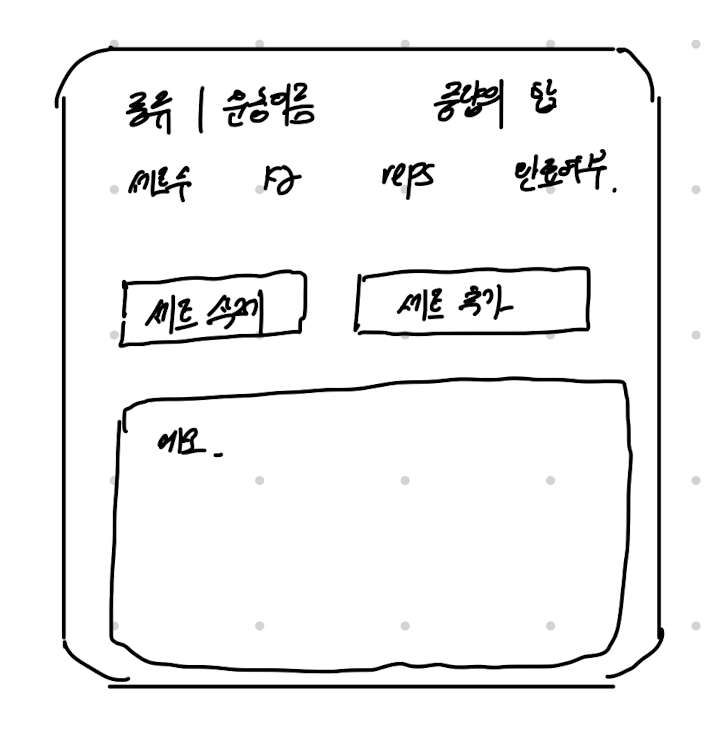 종류 | 운동이름 중량의 합
세트수 kg reps 완료여부.
세트 삭제 세트 추가
메모.